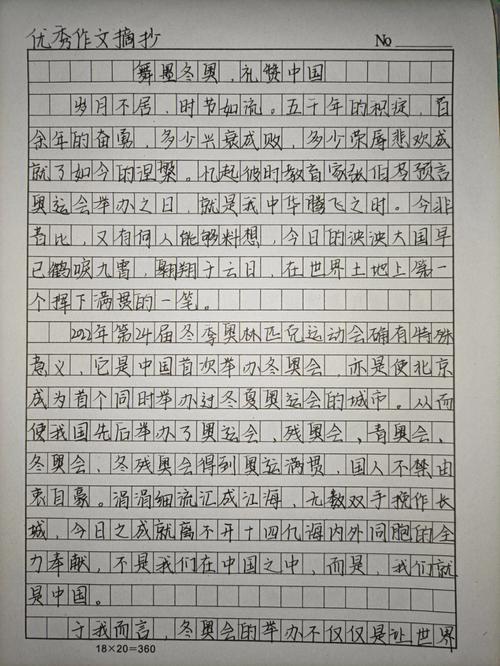 优秀作文摘抄 No
舞墨冬奥,礼赞中国
岁月不居,时节如流。五千年的积淀,百
余年的奋勇,多少兴衰成败,多少荣辱悲欢成
就了如今的涅槃。忆起彼时教育家张伯苓预言
奥运会举办之日,就是我中华腾飞之时。今非
昔比,又有何人能够料想,今日的泱泱大国早
已鹤唳九霄,翱翔于云日,在世界土地上第一
个挥下满贯的一笔。
2022年第24届冬季奥林匹克运动会确有特殊
意义,它是中国首次举办冬奥会,亦是使北京
成为首个同时举办过冬夏奥运会的城市。从而
使我国先后举办了奥运会、残奥会、青奥会、
冬奥会、冬残奥会得到奥运满贯,国人不禁由
衷自豪。涓涓细流汇成江海,无数双手挽作长
城,今日之成就离不开十四亿海内外同胞的全
力奉献,不是我们在中国之中,而是,我们就
是中国。
于我而言,冬奥会的举办不仅仅是让世界
18×20=360